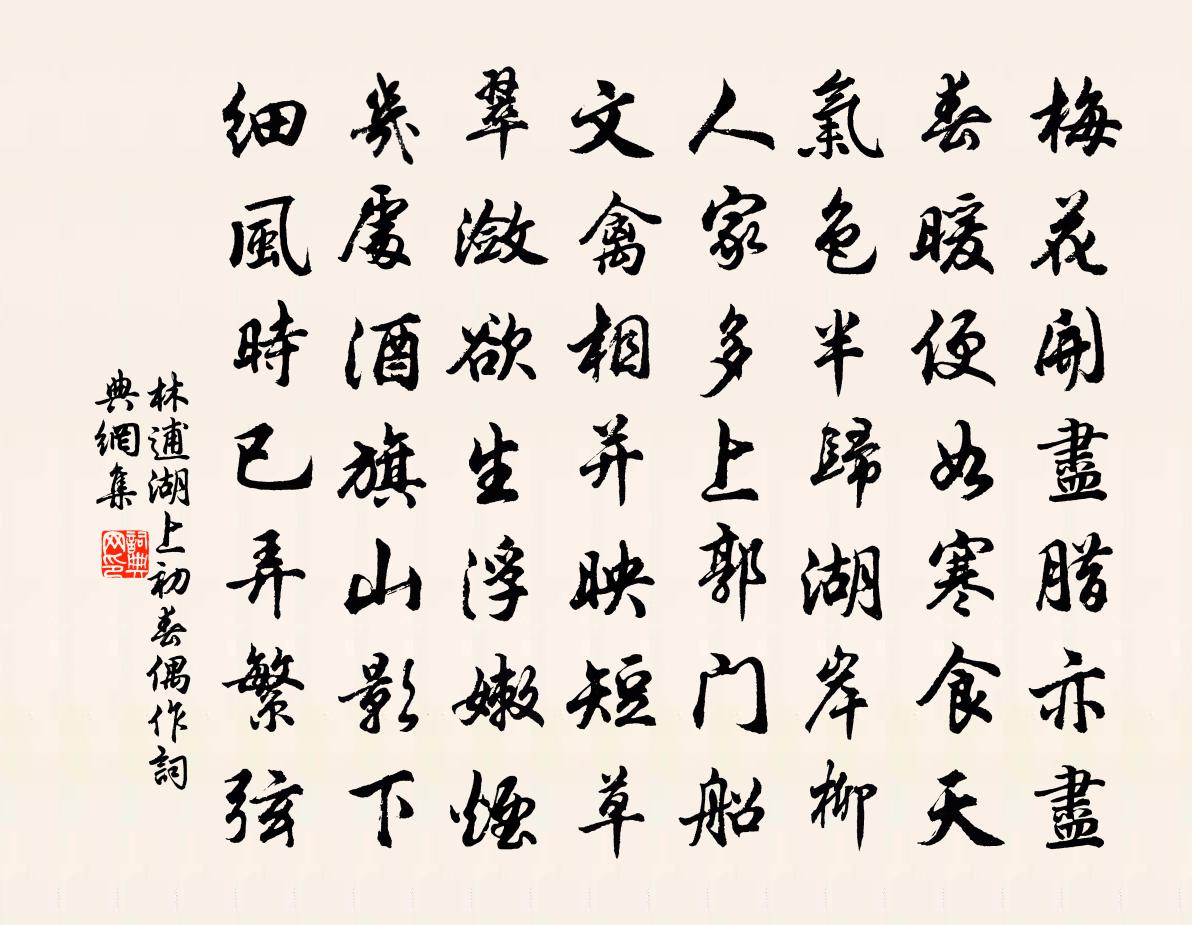 梅花開盡腊亦盡
春暖便如寒食天
氣色半歸湖岸柳
人家多上郭门船
文禽相并映短草
翠瀲欲生浮嫩煙
幾處酒旗山影下
细風時已弄繁弦
林逋湖上初春偶作詞
典網集
詞典
网印